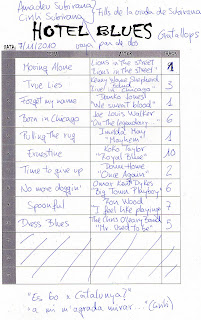 Amadeu Subirana
Cinti Subirana
Fills de la viuda de Subirana
HOTEL BLUES
Cantallops
DATA: 7/11/2010
vaya par de dos
Moving Alone Lions in the street "Lions in the street" 1
True Lies Kenny Wayne Shepherd Band "Live! in Chicago" 3
Forget my name Danko Jones "We sweat blood" 1
Born in Chicago Joe Louis Walker "On the legendary" 6
Pulling the rug Imelda May "Mayhem" 1
Ernestine Koko Taylor "Royal Blue" 10
Time to give up Down Home "Once Again" 2
No more doggin' Omar Kent Dykes "Big Town Playboy" 6
Spoonful Ron Wood "I feel like playing" 7
Dress Blues The Chris O'Leary Band "Mr. Used To Be" 5
"Es bo x Catalunya?"
"a mi m'agrada mirar..." (Cinti)